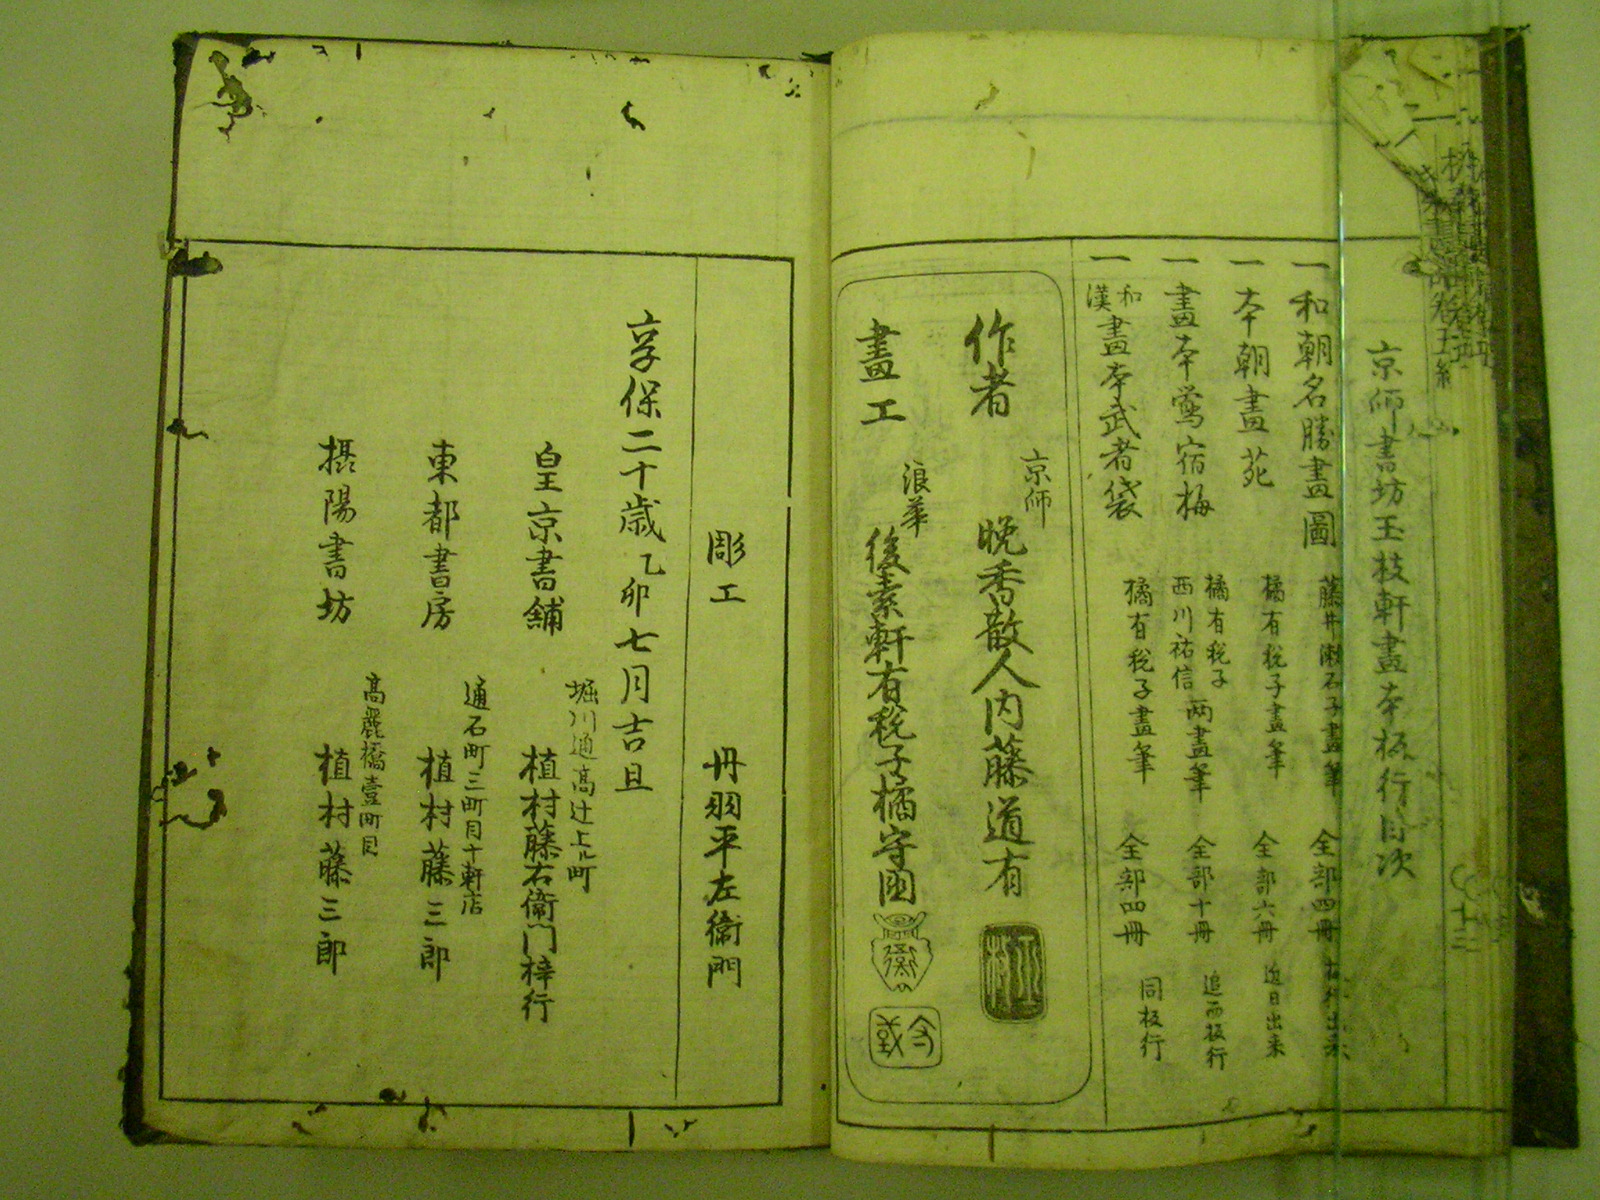 京師書坊玉枝軒畫本板行目次
一和朝名勝畫圖 藤井漱石子畫筆 全部四冊 板行出来
一本朝畫苑 橘有税子畫筆 全部六冊 近日出来
一畫本鶯宿梅 橘有税子 西川祐信 両畫筆 全部十冊 追而板行
一和漢畫本武者袋 橘有税子畫筆 全部四冊 同板行
作者 京師 晩香散人内藤道有
畫工 浪華 後素軒有税子橘守国
彫工 丹羽平左衛門
享保二十歳乙卯七月吉旦
皇京書舗 堀川通高辻上ル町 植村藤右衛門梓行
東都書房 通石町三町目十軒店 植村藤三郎
摂陽書坊 高麗橋壹町目 植村藤三郎